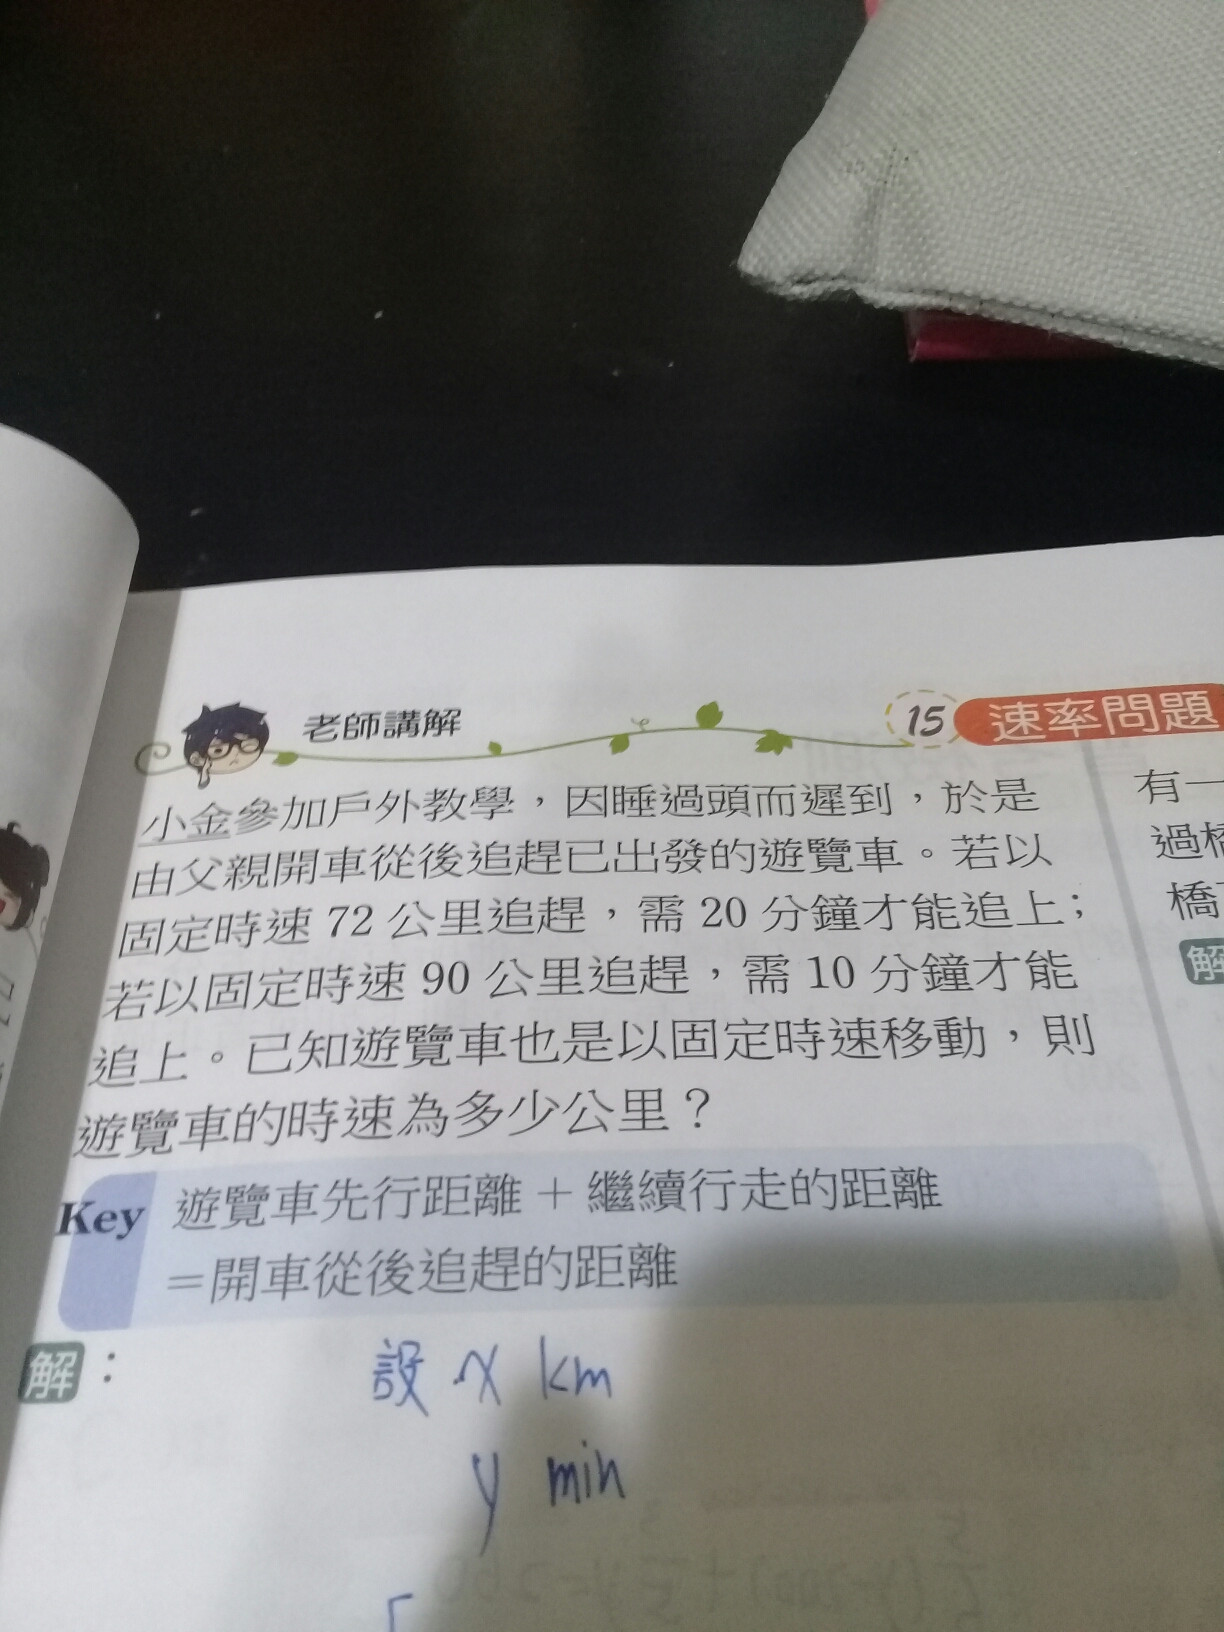 老師講解
15 速率問題
小金參加戶外教學，因睡過頭而遲到，於是
由父親開車從後追趕已出發的遊覽車。若以
固定時速 72 公里追趕，需 20 分鐘才能追上；
若以固定時速 90 公里追趕，需 10 分鐘才能
追上。已知遊覽車也是以固定時速移動，則
遊覽車的時速為多少公里？
Key 遊覽車先行距離＋繼續行走的距離
＝開車從後追趕的距離
解：
設 x km
y min
有一
過橋
橋
解